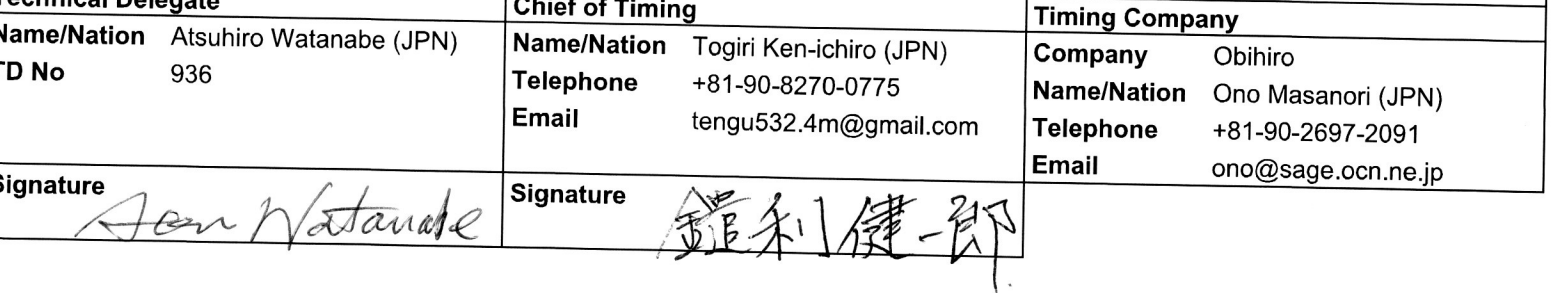 Technical Delegate
Name/Nation Atsuhiro Watanabe (JPN)
TD No 936
Signature
Watanabe
Chief of Timing
Name/Nation Togiri Ken-ichiro (JPN)
Telephone +81-90-8270-0775
Email tengu532.4m@gmail.com
Signature
利健一郎
Timing Company
Company Obihiro
Name/Nation Ono Masanori (JPN)
Telephone +81-90-2697-2091
Email ono@sage.ocn.ne.jp